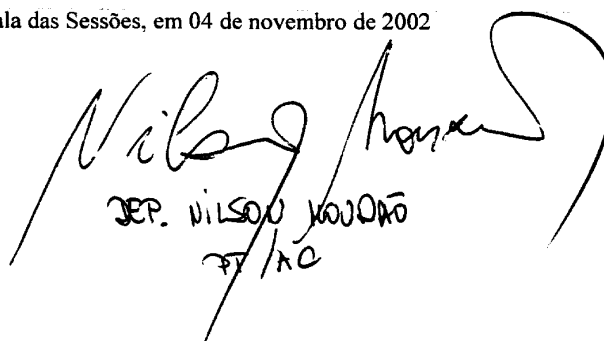 ala das Sessões, em 04 de novembro de 2002
Nilson Mourão
DEP. NILSON MOURÃO
PT/AC